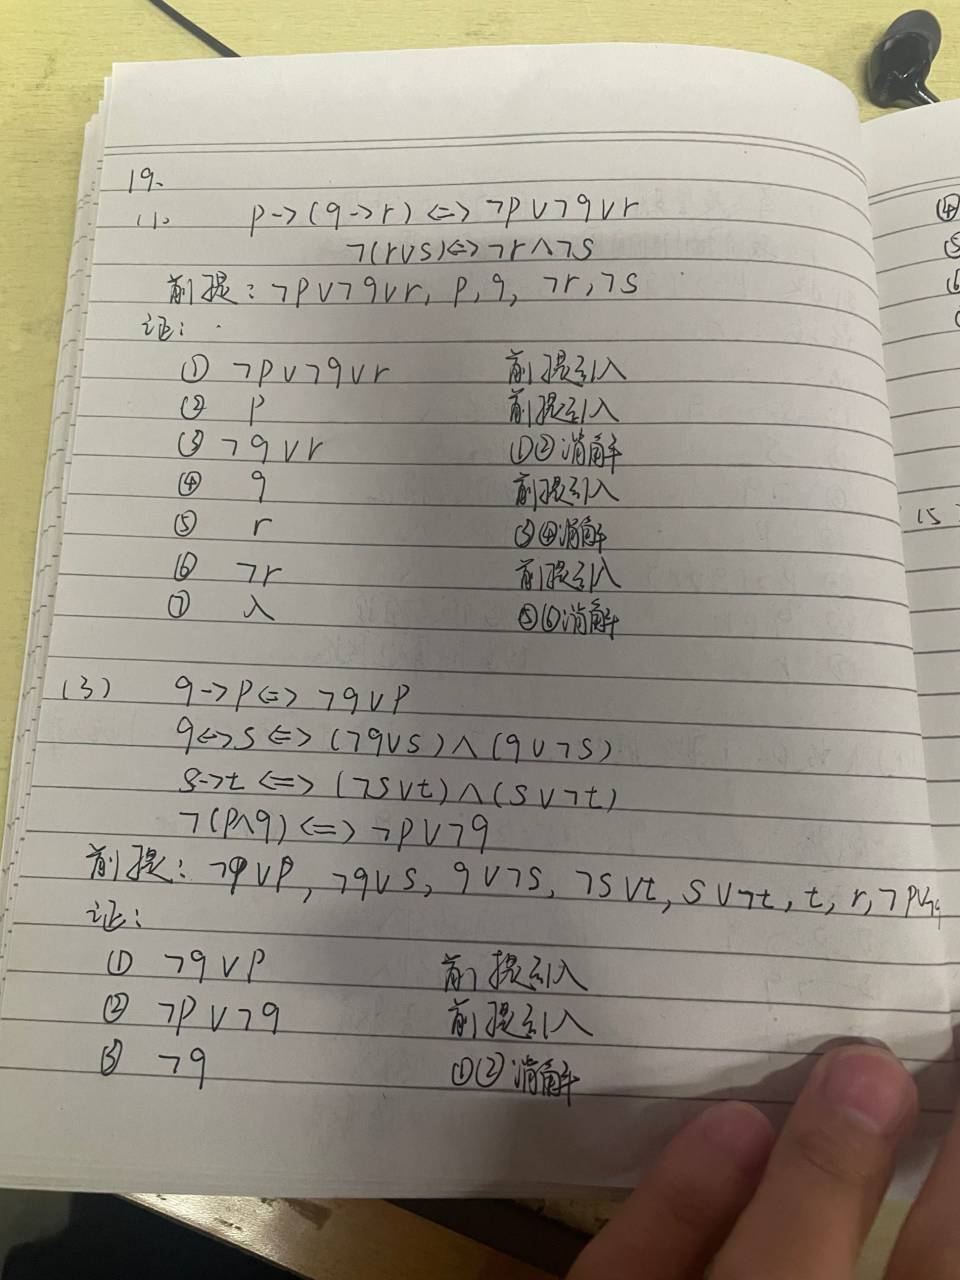 19.
(1). p→(q→r)⇔¬p∨¬q∨r
¬(r∨s)⇔¬r∧¬s
前提:¬p∨¬q∨r, p, q, ¬r, ¬s
证:
① ¬p∨¬q∨r 前提引入
② p 前提引入
③ ¬q∨r ①②消解
④ q 前提引入
⑤ r ③④消解
⑥ ¬r 前提引入
⑦ λ ⑤⑥消解
(3) q→p⇔¬q∨p
q↔s⇔(¬q∨s)∧(q∨¬s)
s→t⇔(¬s∨t)∧(s∨¬t)
¬(p∧q)⇔¬p∨¬q
前提:¬q∨p, ¬q∨s, q∨¬s, ¬s∨t, s∨¬t, t, r, ¬p∨¬q
证:
① ¬q∨p 前提引入
② ¬p∨¬q 前提引入
③ ¬q ①②消解
④
⑤
⑥
(5)